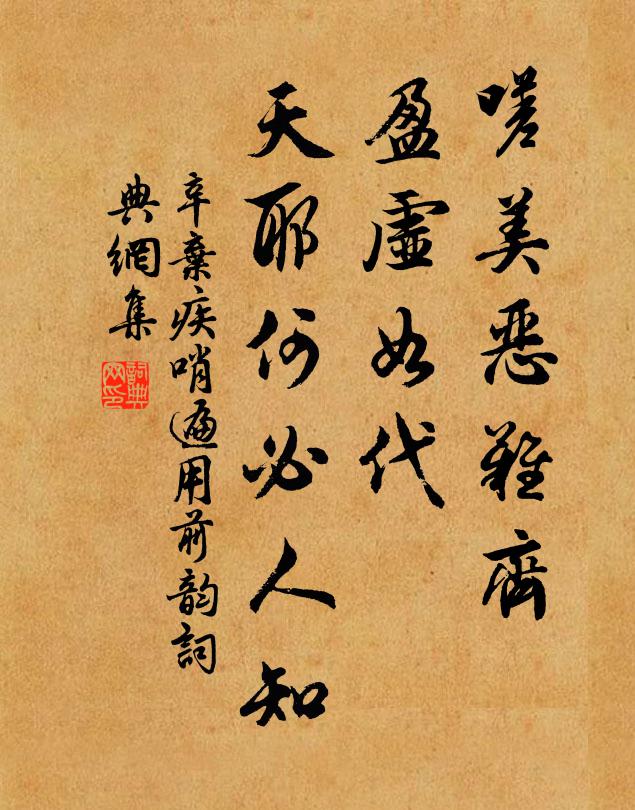 嗟美恶難齊
盈虛如代
天耶何必人知
辛棄疾哨遍用前韵詞
典網集
詞典
网印